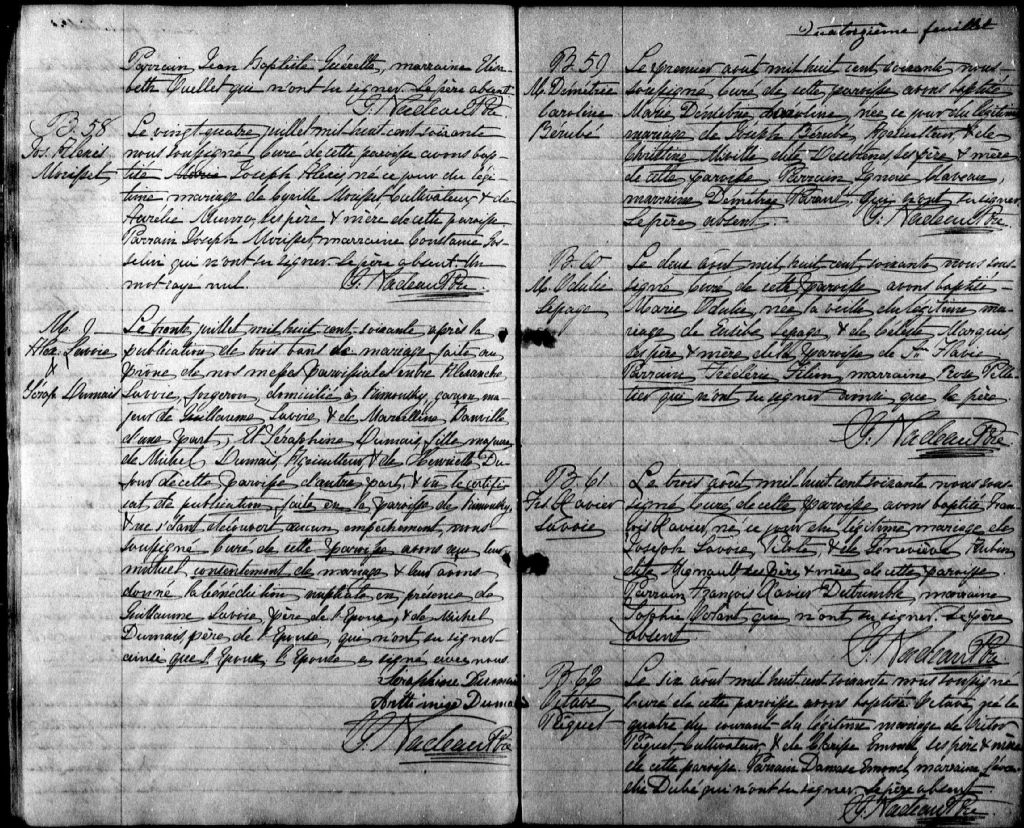 Parrain Jean Baptiste Guérette, marraine Elisa-
beth Ouellet qui n'ont su signer. Le père absent
G. Nadeau Ptre
B. 58
Jos. Alexis
Morisset
Le vingt quatre juillet mil huit cent soixante
nous soussigné Curé de cette paroisse avons bap-
tisé Joseph Alexis, né ce jour du légi-
time mariage de Cyrille Morisset Cultivateur, & de
Aurélie Munro, les père & mère de cette paroisse
Parrain Joseph Morisset, marraine Constance Jos-
selin qui n'ont su signer. Le père absent. Un
mot rayé nul.
G. Nadeau Ptre.
M. 7
Alex. Lavoie
&
Séraph. Dumais
Le trente juillet mil huit cent soixante après la
publication de trois bans de mariage faite au
prone de nos messes paroissiales entre Alexandre
Lavoie, forgeron, domicilié à Rimousky, garçon ma-
jeur de Guillaume Lavoie & de Marcelline Banville
d'une part; Et Séraphine Dumais, fille majeure
de Michel Dumais, Agriculteur, & de Henriette
de cette paroisse d'autre part, & vu le certifi-
cat de publication faite en la paroisse de Rimousky,
& ne s'étant découvert aucun empêchement, nous
soussigné Curé de cette paroisse avons reçu leur
mutuel consentement de mariage & leur avons
donné la bénédiction nuptiale en présence de
Guillaume Lavoie, père de l'Epoux, & de Michel
Dumais, père de l'Epouse, qui n'ont su signer
ainsi que l'Epoux. l'Epouse a signé avec nous.
Séraphine Dumais
Dumais
G. Nadeau Ptre
Quatorzième feuillet
B. 59
M. Démétrie
Caroline
Bérubé
Le premier août mil huit cent soixante nous
soussigné Curé de cette paroisse avons baptisé
Marie Démétrie Caroline, née ce jour du légitime
mariage de Joseph Bérubé, Agriculteur, & de
Christine Miville dite Deschênes, les père & mère
de cette paroisse. Parrain Ignace
marraine Démétrie qui n'ont su signer
Le père absent.
G. Nadeau Ptre
B. 60
M. Odulie
Lepage
Le deux août mil huit cent soixante nous sous-
signé Curé de cette paroisse avons baptisé
Marie Odulie, née la veille du légitime ma-
riage de Eusèbe Lepage & de Céleste Marquis
les père & mère de la paroisse de Ste Flavie
Parrain Frédéric Filion, marraine Rose Pelle-
tier qui n'ont su signer ainsi que le père
G. Nadeau Ptre
B. 61
Frs. Xavier
Lavoie
Le trois août mil huit cent soixante nous sous-
signé Curé de cette paroisse avons baptisé Fran-
çois Xavier, né ce jour du légitime mariage de
Joseph Lavoie, Pilote, & de Geneviève Aubin
dite Mignault, les père & mère de cette paroisse.
Parrain François Xavier marraine
Sophie qui n'ont su signer. Le père
absent
G. Nadeau Ptre
B. 62
Octave
Piquet
Le six août mil huit cent soixante nous soussigné
Curé de cette paroisse avons baptisé Octave, né le
quatre du courant du légitime mariage de Victor
Piquet Cultivateur, & de Clarisse Emond, les père & mère
de cette paroisse. Parrain Damase Emond, marraine
Dubé qui n'ont su signer. Le père absent
G. Nadeau Ptre